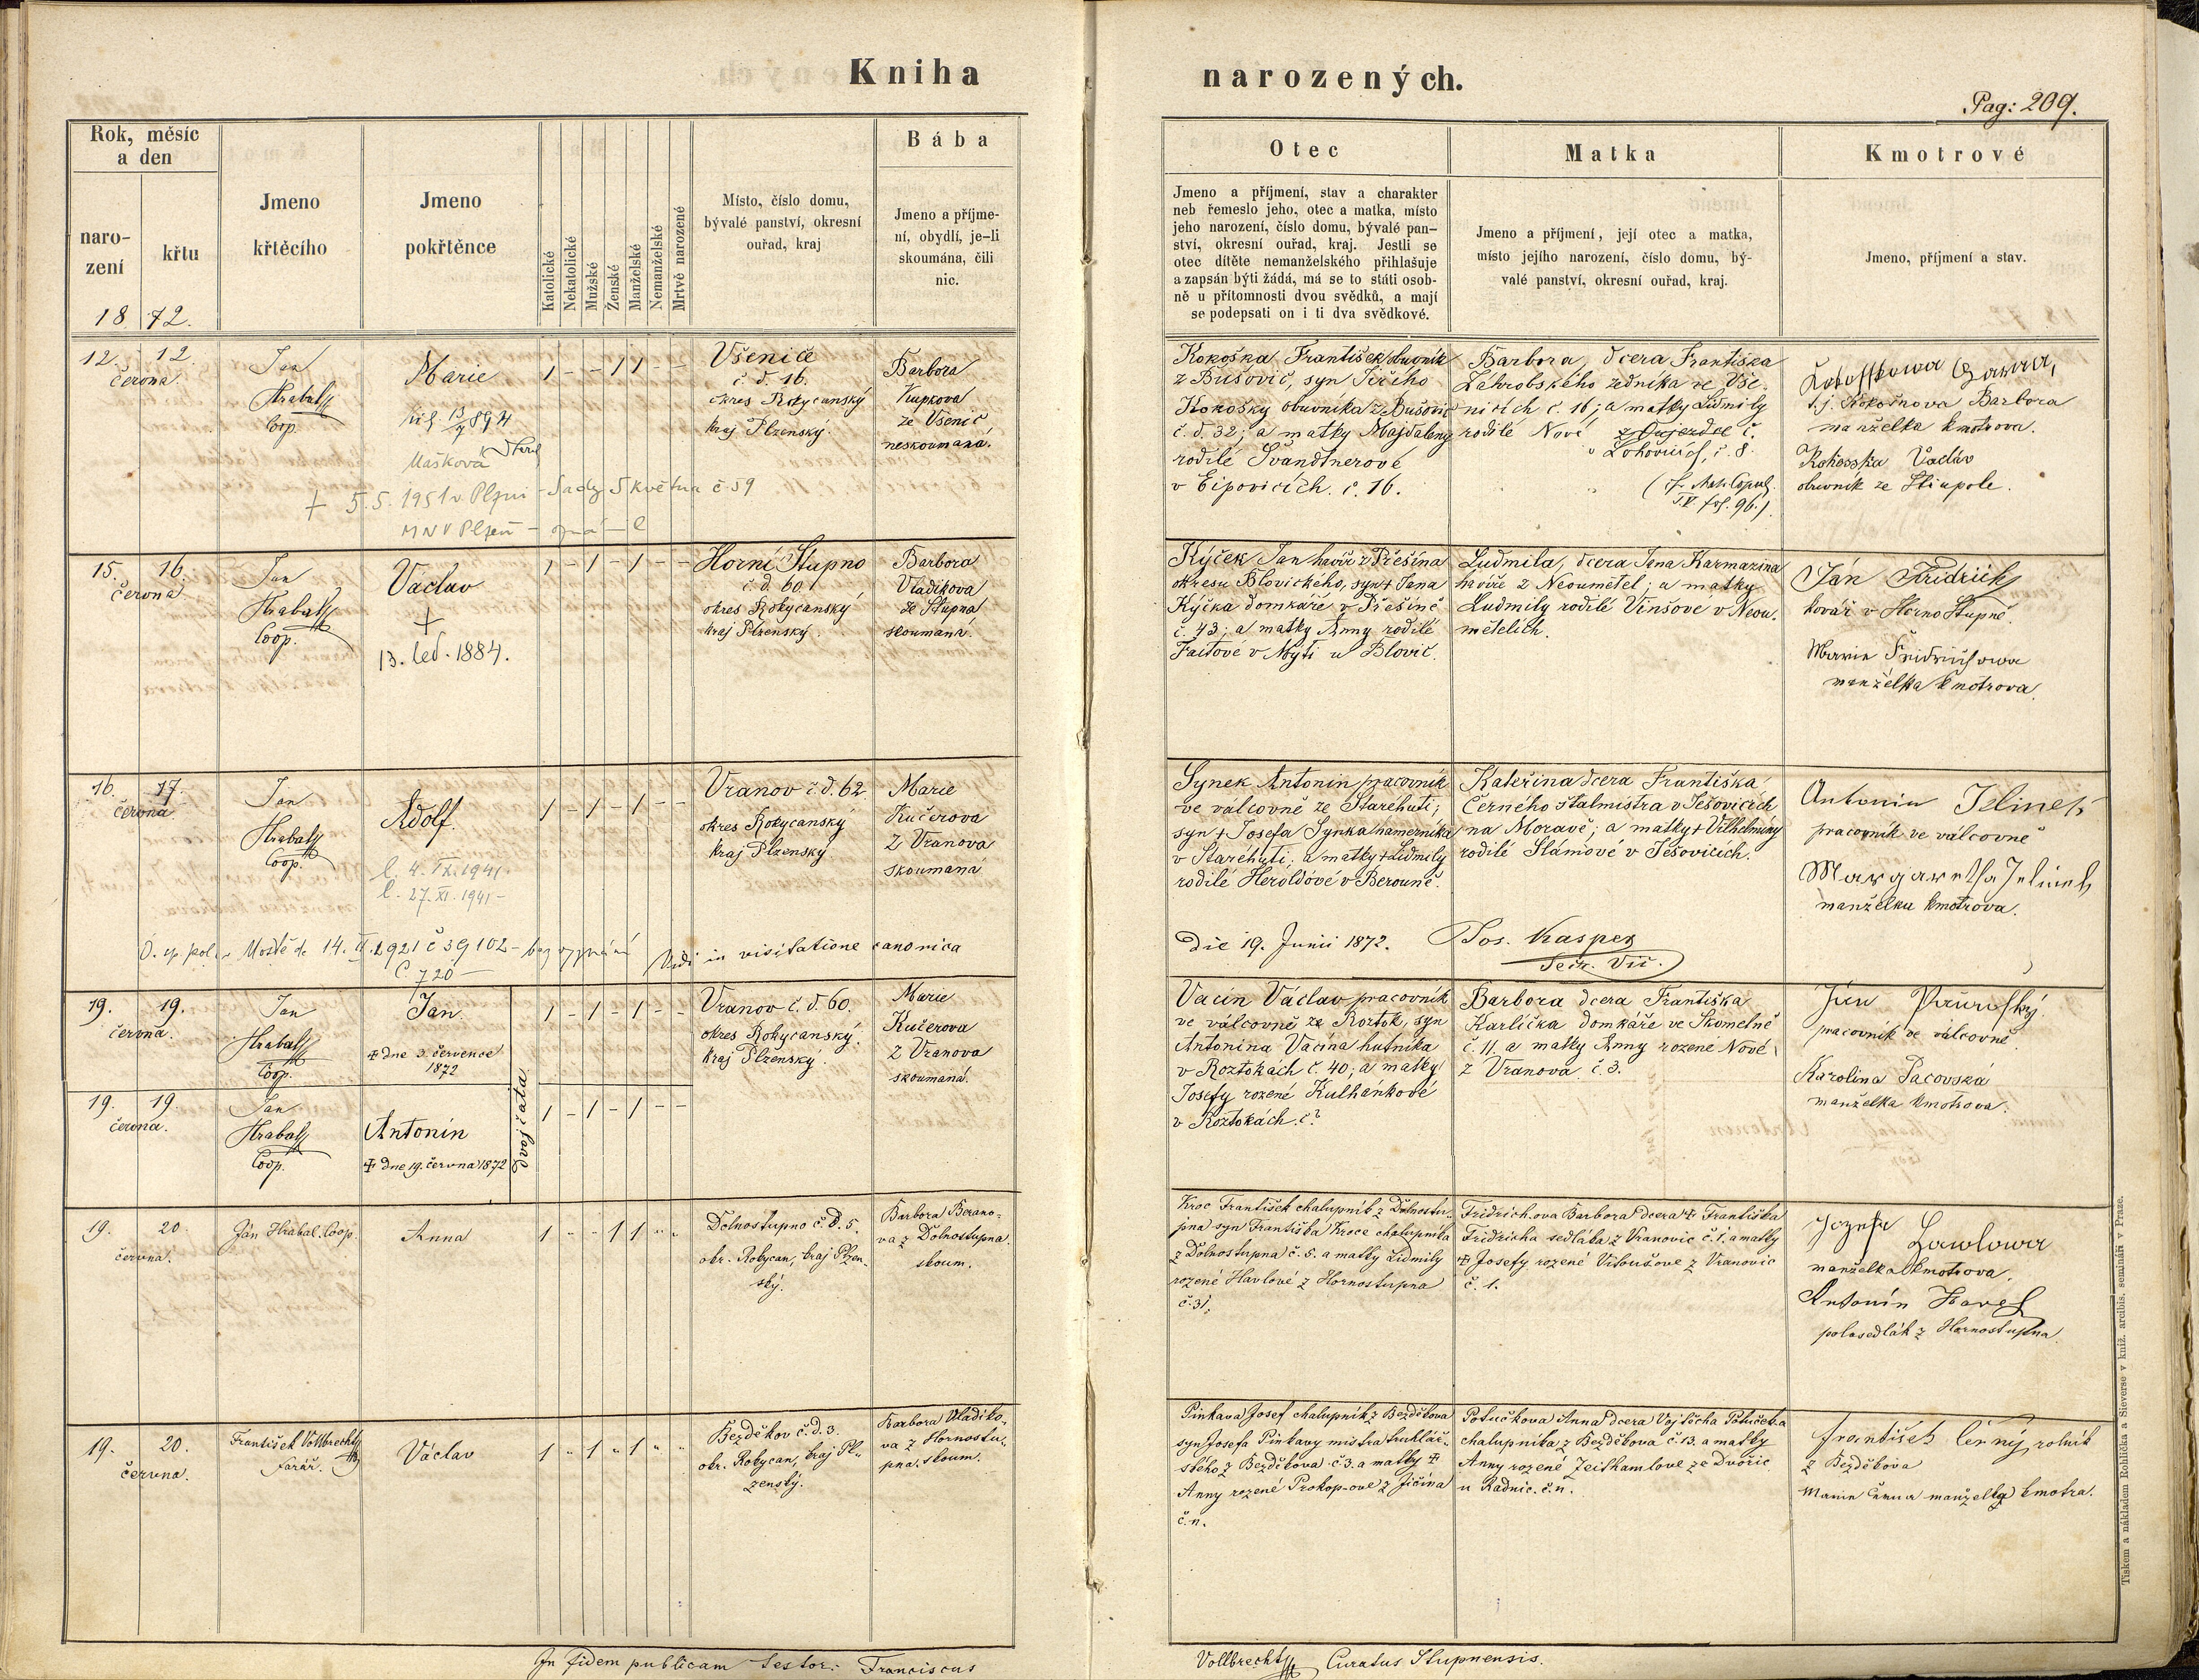 Kniha
narozených.
Pag: 209.
Rok, měsíc
a den
naro-
zení
křtu
1872.
Jmeno
křtěcího
Jmeno
pokřtěnce
Katolické
Nekatolické
Mužské
Ženské
Manželské
Nemanželské
Mrtvě narozené
Místo, číslo domu,
bývalé panství, okresní
ouřad, kraj
Bába
Jmeno a příjme-
ní, obydlí, je-li
skoumána, čili
nic.
Otec
Jmeno a příjmení, stav a charakter
neb řemeslo jeho, otec a matka, místo
jeho narození, číslo domu, bývalé pan-
ství, okresní ouřad, kraj. Jestli se
otec dítěte nemanželského přihlašuje
a zapsán býti žádá, má se to státi osob-
ně u přítomnosti dvou svědků, a mají
se podepsati on i ti dva svědkové.
Matka
Jmeno a příjmení, její otec a matka,
místo jejího narození, číslo domu, bý-
valé panství, okresní ouřad, kraj.
Kmotrové
Jmeno, příjmení a stav.
12. 12.
června.
Jan
Hrabal
Coop.
Marie
Mašková
+ 5.5.1951 v Plzni - Sady 5 května č 59
MNV Plzeň
1 - - 1 1 - -
Všenice
č. d. 16.
okres Rokycanský
kraj Plzenský.
Barbora
Kupkova
ze Všenic,
neskoumaná.
Kokoška František
z Bušovic, syn Jiřího
Kokošky obuvníka z Bušovic
č. d. 32; a matky Majdaleny
rodilé Švandtnerové
v Eipovicích. č. 16.
Barbora, dcera Františka
Zahrobského zedníka ve Vše-
nicích č. 16; a matky Lidmily
rodilé Nové
fol. 96.)
t.j. Barbora
manželka kmotrova.
Kokoška Václav
obuvník ze Štiupole.
15. 16.
června
Jan
Hrabal
Coop.
Vaclav
+
13. led. 1884.
1 - 1 - 1 - -
Horní Stupno
č. d. 60
okres Rokycanský
kraj Plzenský.
Barbora
Vladikova
ze Stupna
skoumaná.
Kýček Jan havíř z Přešína
okresu Blovického, syn + Jana
Kýčka domkáře v Přešíně
č. 43; a matky Anny rodilé
Faitové v Mýti u Blovic.
Ludmila, dcera Jana Karmazina
havíře z Neoumětel; a matky
Ludmily rodilé Vinšové v Neou-
mětelích.
Ján Fridrich
kovář v Horno Stupně.
Marie Fridrichowa
manželka kmotrova.
16. 17.
června
Jan
Hrabal
Coop.
Adolf.
l. 4. IX. 1941.
l. 27. XI. 1941-
1 - 1 - 1 - -
Vranov č. d. 62
okres Rokycanský
kraj Plzenský
Marie
Kučerová
z Vranova
skoumaná
Synek Antonin pracovník
ve válcovně ze Staréhuti;
syn + Josefa Synka
v Staréhuti; a matky + Lidmily
rodilé Heroldové v Berouně.
Kateřina dcera Františka
Černého štalmistra v Ješovicích
na Moravě; a matky + Vilhelminy
rodilé Slámové v Ješovicích.
Antonin Jelinek
pracovník ve válcovně
Margaretha Jelinek
manželka kmotrova.
Mostě d. 14. 1921 č 39102 - bez vyznání
č. 720 -
Vidi in visitatione canonica
die 19. Junii 1872. Jos. Kasper
Secr. Vic.
19. 19.
června.
Jan
Hrabal
Coop.
Jan
+ dne 3. července
1872
dvojčata
1 - 1 - 1 - -
Vranov č. d. 60.
okres Rokycanský.
kraj Plzenský.
Marie
Kučerova
z Vranova
skoumaná.
Vacín Václav pracovník
ve válcovně ze Roztok, syn
Antonina Vacína hutníka
v Roztokách č. 40; a matky
Josefy rozené Kulhánkové
v Roztokách. č?
Barbora dcera Františka
Karlíčka domkáře ve Skomelně
č. 11. a matky Anny rozené Nové
z Vranova č. 3.
pracovník ve válcovně.
Karolina Pacovská
manželka kmotrova.
19. 19.
června.
Jan
Hrabal
Coop.
Antonín
+ dne 19. června 1872
1 - 1 - 1 - -
19. 20.
června.
Ján Hrabal Coop.
Anna
1 " " 1 1 " "
Dolnostupno č. d. 5.
okr. Rokycan, kraj Plzen-
ský.
Barbora Berano-
va z Dolnostupna
skoum.
Kroc František chalupník z Dolnostu-
pna syn Františka Kroce chalupníka
z Dolnostupna č. 5. a matky Lidmily
rozené Havlové z Hornostupna
č. 31.
Fridrichova Barbora dcera + Františka
Fridricha sedláka z Vranovic č. 1. a matky
+ Josefy rozené Vitoušove z Vranovic
č. 1.
manželka kmotrova.
Antonín Havel
polosedlák z Hornostupna.
19. 20.
června.
František Vollbrecht
farář.
Václav
1 " 1 " 1 " "
Bezděkov č. d. 3.
okr. Rokycan, kraj Pl-
zenský.
Barbora Vladiko-
va z Hornostu-
pna. skoum.
Pinkava Josef chalupník z Bezděkova
syn Josefa Pinkavy mistra truhlář-
ského z Bezděkova č 3. a matky +
Anny rozené Prokop-ove z Jičína
č. n.
Potučkova Anna dcera Vojtěcha Potučeka
chalupníka z Bezděkova č. 13. a matky
Anny rozené Zeithamlove ze Dvořic
u Radnic. č. n.
František Černý rolník
z Bezděkova
Marie manželka kmotra.
In fidem publicam testor: Franciscus
Vollbrecht Curatus Stupnensis.
Tiskem a nákladem Rohlíčka a Sieverse v kníž. arcibis. semináři v Praze.